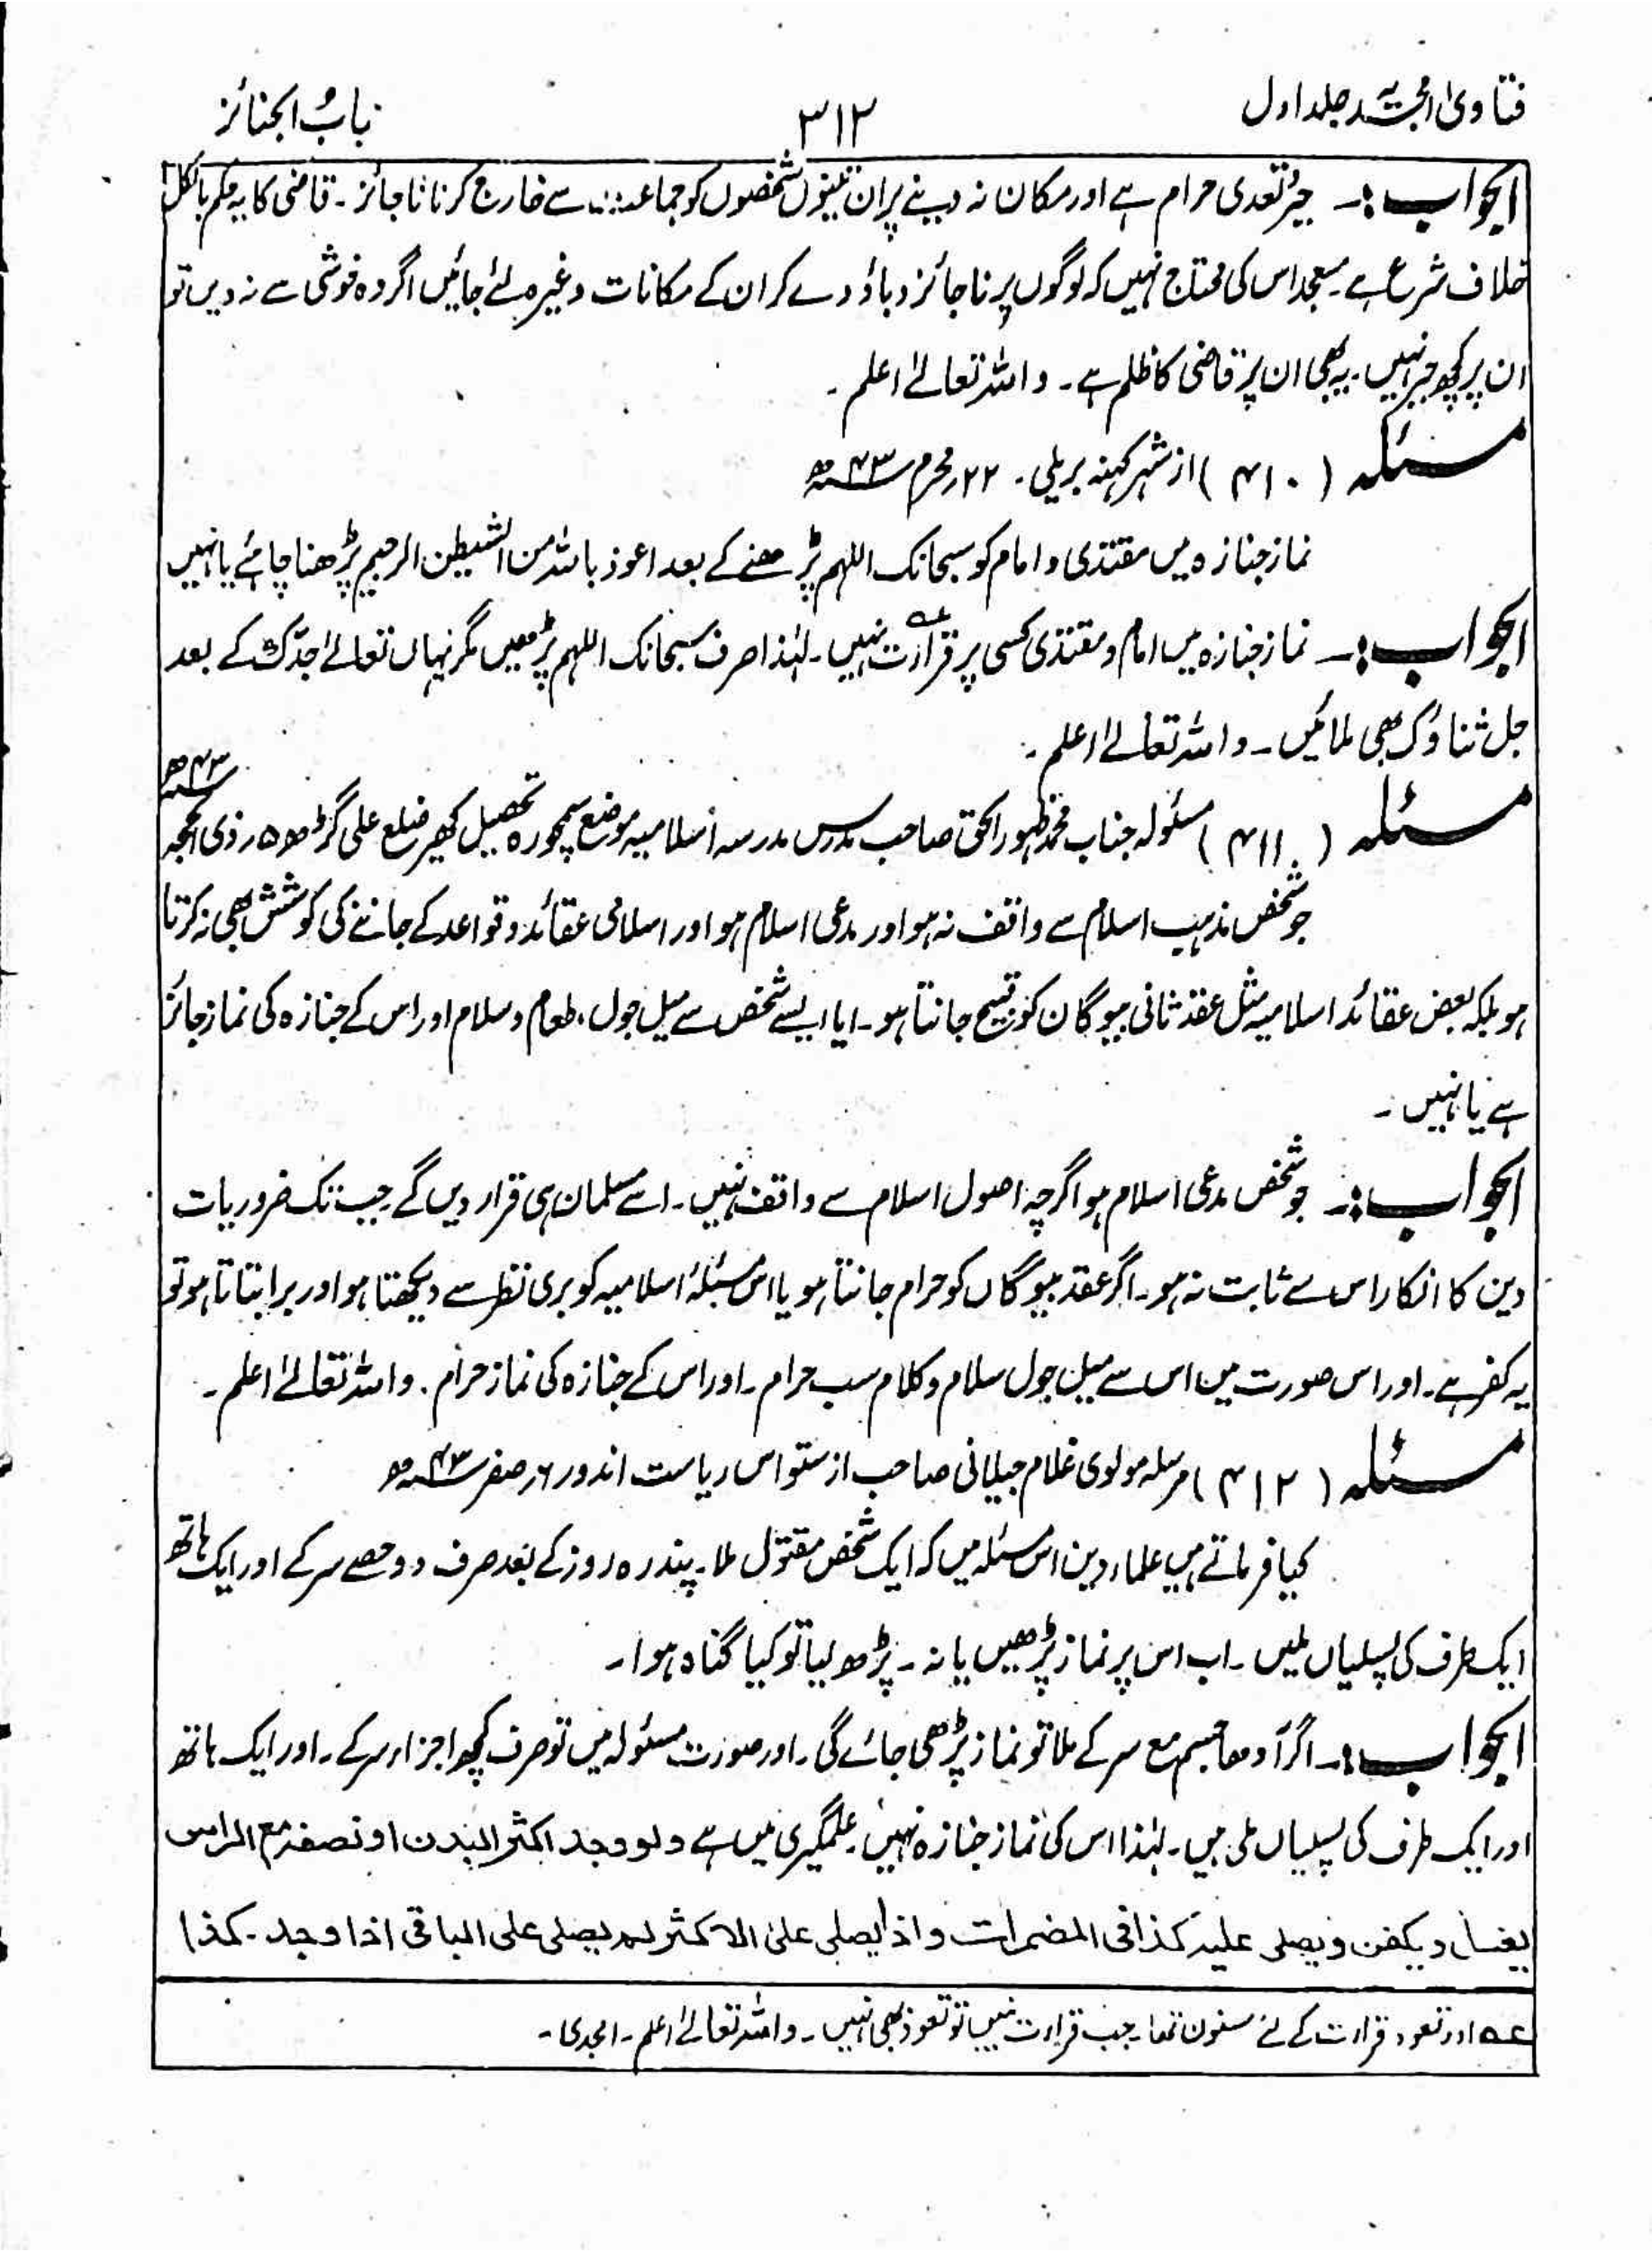 فتاویٰ امجدیہ جلد اول
۳۱۲
باب الجنائز
الجواب:۔ جبر تعدی حرام ہے اور مکان نہ دینے پر ان تینوں شخصوں کو جماعت سے خارج کرنا ناجائز۔ قاضی کا یہ حکم بالکل
خلاف شرع ہے۔ مسجد اس کی محتاج نہیں کہ لوگوں پر ناجائز دباؤ دے کر ان کے مکانات وغیرہ لئے جائیں اگر وہ خوشی سے نہ دیں تو
ان پر کچھ جبر نہیں۔ یہ بھی ان پر قاضی کا ظلم ہے۔ واللہ تعالےٰ اعلم۔
مسئلہ (۴۱۰) از شہر کہنہ بریلی۔ ۲۲؍محرم ۴۳ھ
نماز جنازہ میں مقتدی و امام کو سبحانک اللہم پڑھنے کے بعد اعوذ باللہ من الشیطن الرجیم پڑھنا چاہئے یا نہیں
الجواب:۔ نماز جنازہ میں امام و مقتدی کسی پر قرأت عہ نہیں۔ لہٰذا صرف سبحانک اللہم پڑھیں مگر یہاں تعالےٰ جدّک کے بعد
جل ثناؤک بھی ملائیں۔ واللہ تعالےٰ اعلم۔
مسئلہ (۴۱۱) مسئولہ جناب محمد ظہور الحق صاحب مدرس مدرسہ اسلامیہ موضع تحصیل کھیر ضلع علی گڑھ ۵؍ ذی الحجہ ۴۳ھ
جو شخص مذہب اسلام سے واقف نہ ہو اور مدعی اسلام ہو اور اسلامی عقائد و قواعد کے جاننے کی کوشش بھی نہ کرتا
ہو بلکہ بعض عقائد اسلامیہ مثل عقد ثانی بیوگان کو قبیح جانتا ہو۔ ایا ایسے شخص سے میل جول، طعام و سلام اور اس کے جنازہ کی نماز جائز
ہے یا نہیں۔
الجواب:۔ جو شخص مدعی اسلام ہو اگرچہ اصول اسلام سے واقف نہیں۔ اسے مسلمان ہی قرار دیں گے جب تک ضروریات
دین کا انکار اس سے ثابت نہ ہو۔ اگر عقد بیوگاں کو حرام جانتا ہو یا اس مسئلۂ اسلامیہ کو بری نظر سے دیکھتا ہو اور برا بتاتا ہو تو
یہ کفر ہے۔ اور اس صورت میں اس سے میل جول سلام و کلام سب حرام۔ اور اس کے جنازہ کی نماز حرام۔ واللہ تعالےٰ اعلم۔
مسئلہ (۴۱۲) مرسلہ مولوی غلام جیلانی صاحب از ستواس ریاست اندور ۶؍صفر ۴۳ھ
کیا فرماتے ہیں علماء دین اس مسئلہ میں کہ ایک شخص مقتول ملا۔ پندرہ روز کے بعد صرف دو حصے سر کے اور ایک ہاتھ
ایک طرف کی پسلیاں ملیں۔ اب اس پر نماز پڑھیں یا نہ۔ پڑھ لیا تو کیا گناہ ہوا۔
الجواب:۔ اگر آدھا جسم مع سر کے ملا تو نماز پڑھی جائے گی۔ اور صورت مسئولہ میں تو صرف کچھ اجزاء سر کے۔ اور ایک ہاتھ
اور ایک طرف کی پسلیاں ملی ہیں۔ لہٰذا اس کی نماز جنازہ نہیں۔ علمگیری میں ہے ولو وجد اکثر البدن او نصفہ مع الراس
یغسل ویکفن ویصلی علیہ کذا فی المضمرات واذا یصلی علی الاکثر لم یصلی علی الباقی اذا وجد۔ کذا
عہ اور تعوذ قرات کے لئے مسنون تھا۔ جب قرارت نہیں تو تعوذ بھی نہیں۔ واللہ تعالےٰ اعلم۔ امجدی۔